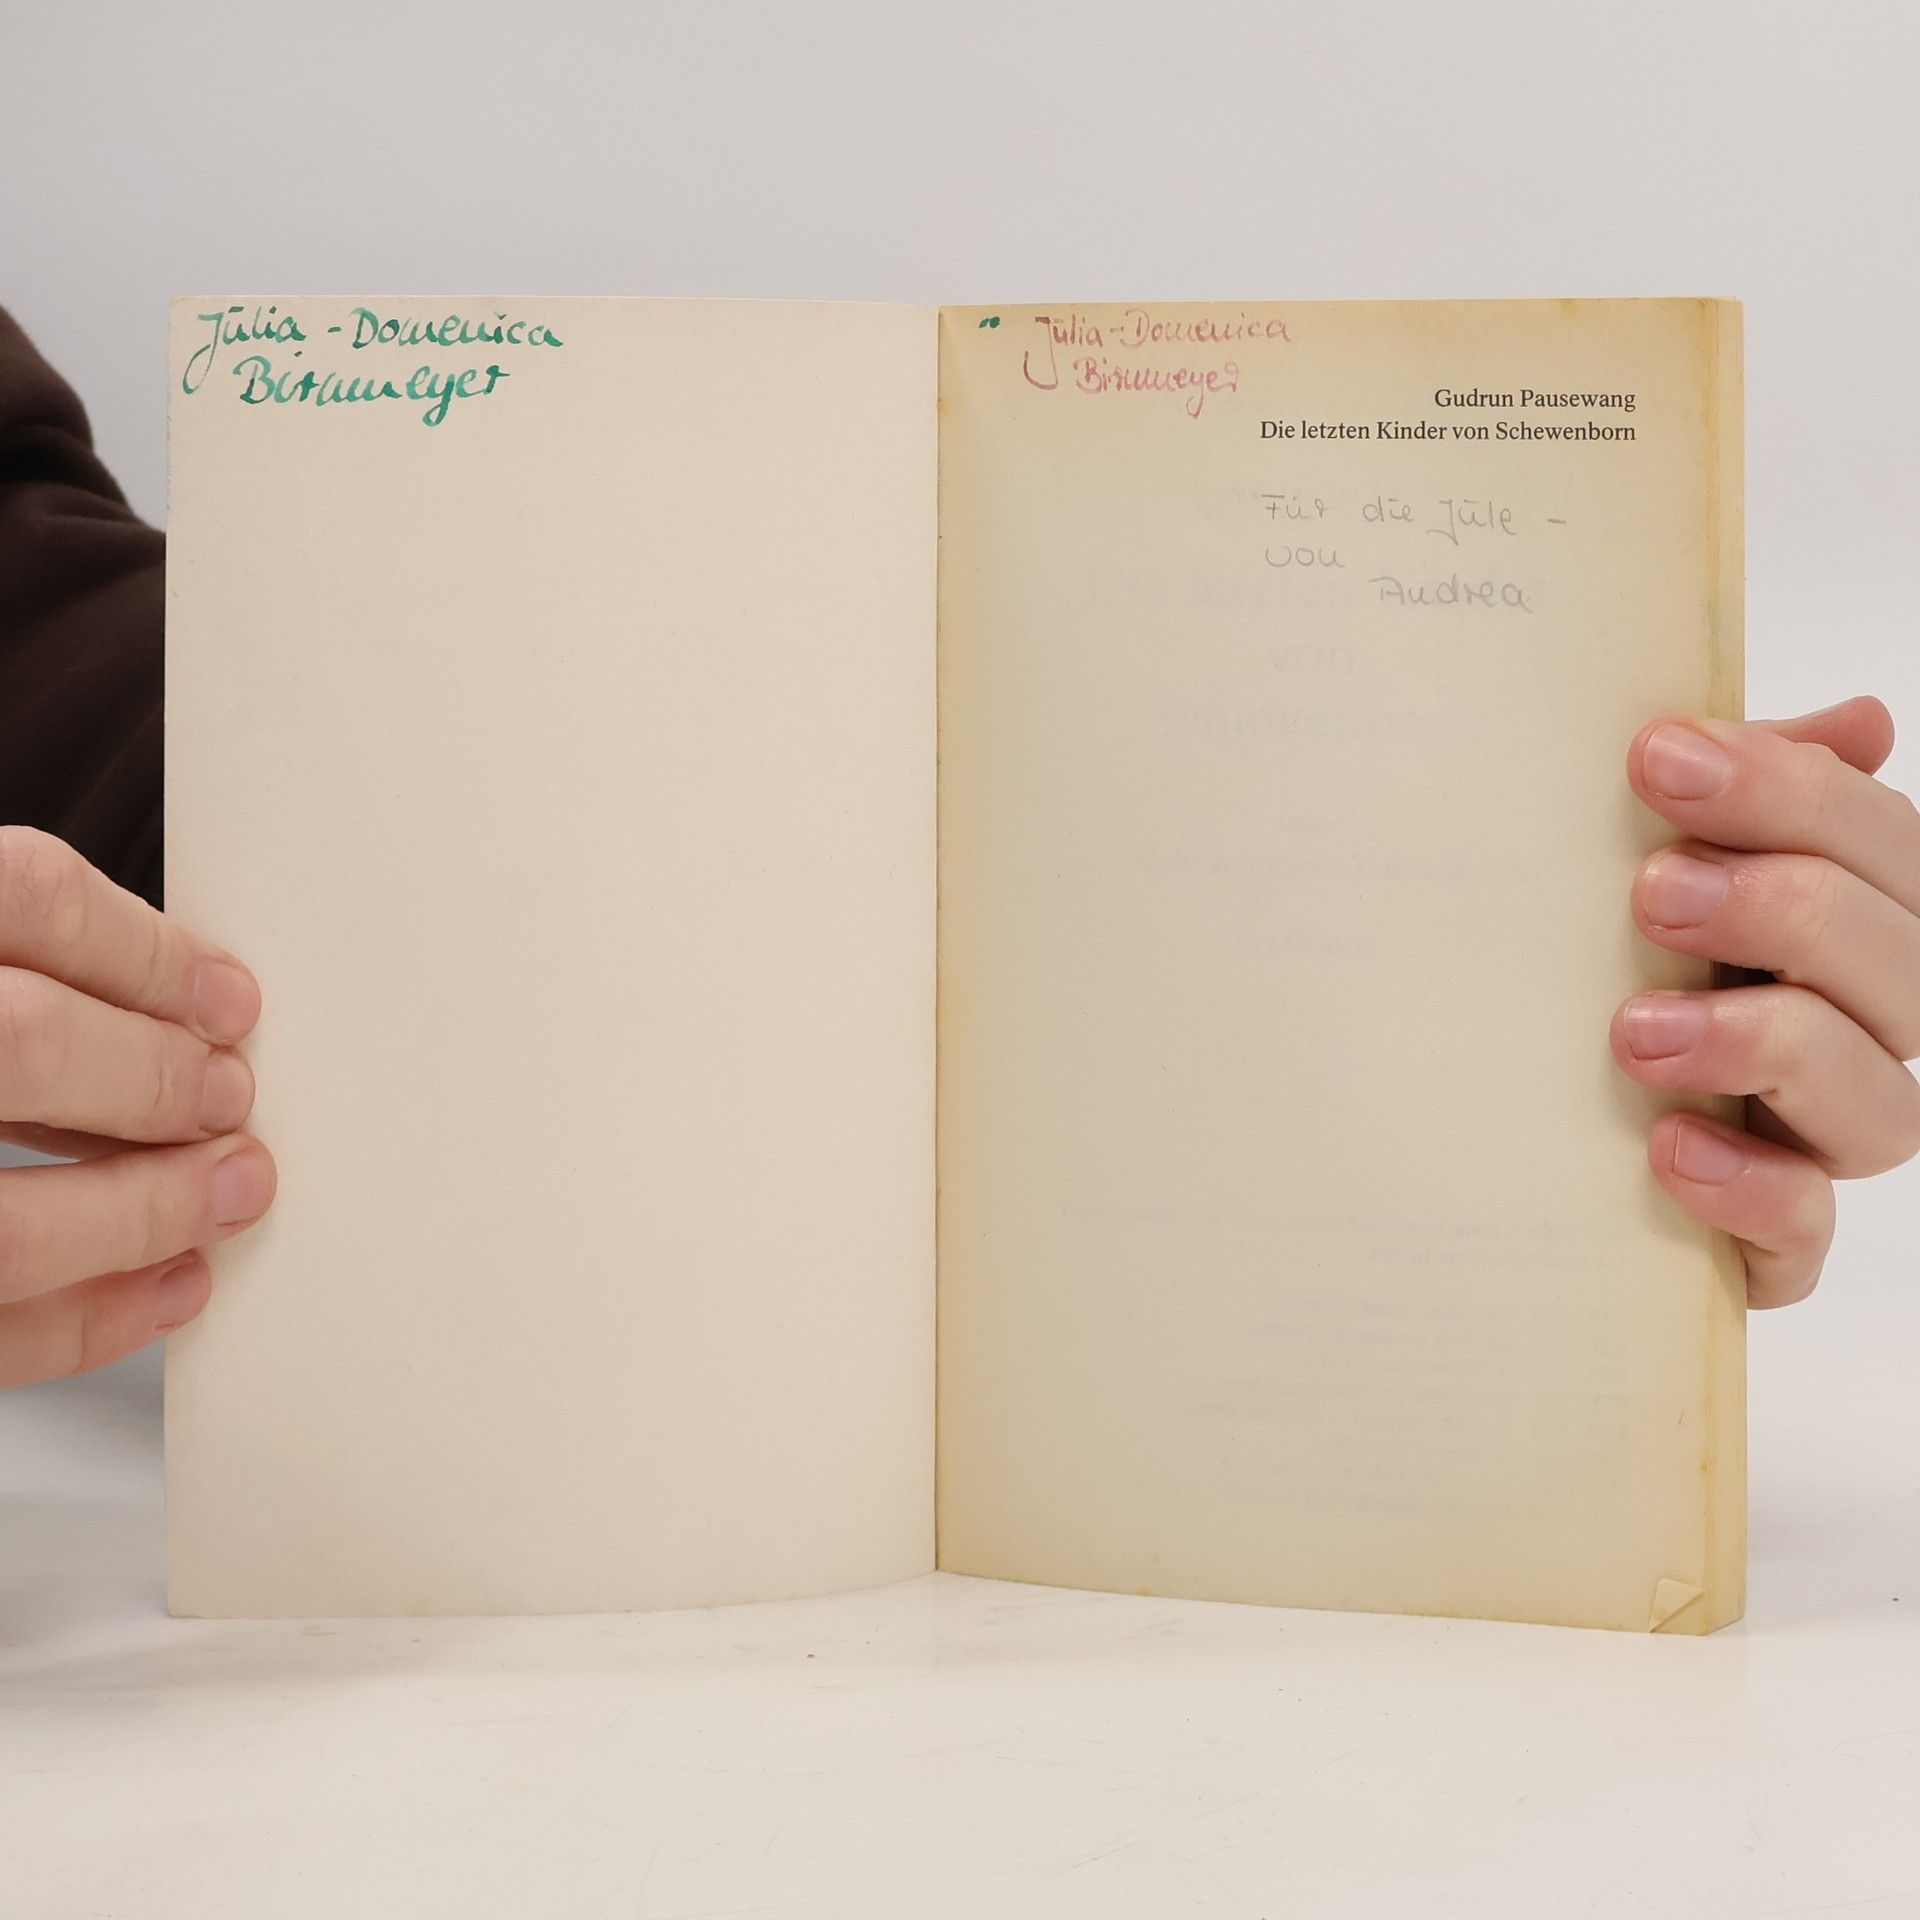 Julia - Domenica
Birnmeyer
Julia - Domenica
Birnmeyer
Gudrun Pausewang
Die letzten Kinder von Schewenborn
Für die Jule -
von
Andrea